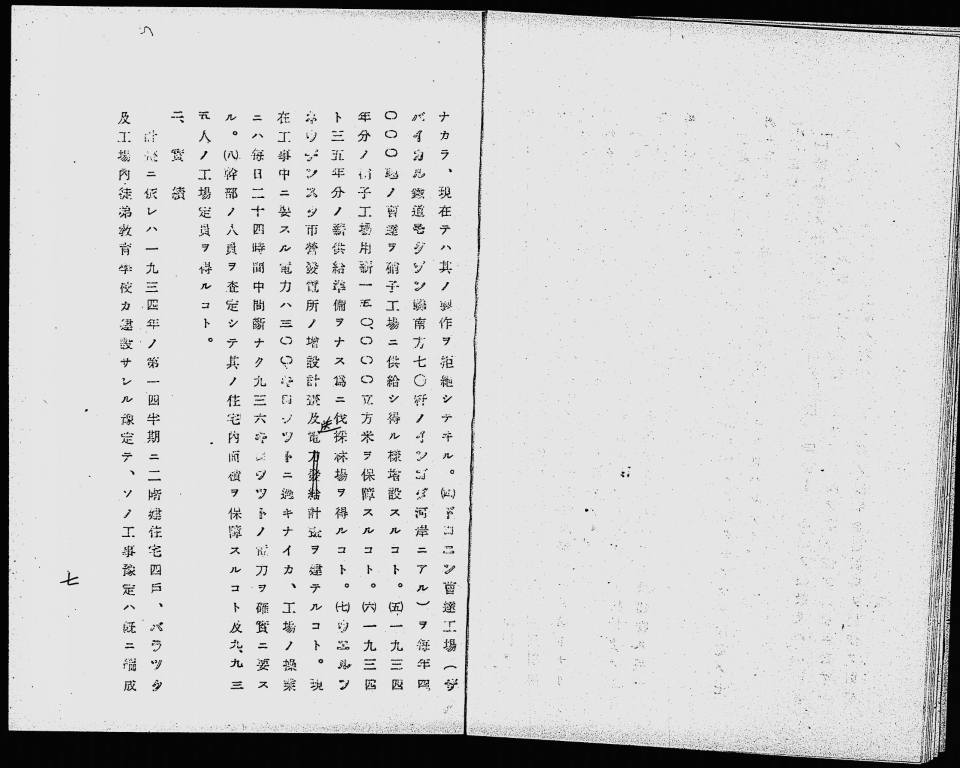 ナカラ、現在テハ其ノ製作ヲ拒絶シテキル。㈣ドロニン曹達工場(ザ
バイカル鐵道モグゾン驛南方七〇粁ノインゴダ河岸ニアル)ヲ毎年四
〇〇〇噸ノ曹達ヲ硝子工場ニ供給シ得ル樣增設スルコト。㈤一九三四
年分ノ硝子工場用薪一五〇〇〇〇立方米ヲ保障スルコト。㈥一九三四
ト三五年分ノ薪供給準備ヲナス爲ニ伐採林場ヲ得ルコト。㈦ウエルフ
ネウヂンスク市營發電所ノ增設計畫及電力發給計畫ヲ建テルコト。現
送
在工事中ニ要スル電力ハ三〇〇キロワツトニ過キナイカ、工場ノ操業
ニハ毎日二十四時間中間斷ナク九三六キロワツトノ電力ヲ確實ニ要ス
ル。㈧幹部ノ人員ヲ査定シテ其ノ住宅內面積ヲ保障スルコト及九、九三
五人ノ工場定員ヲ得ルコト。
二、實績
計畫ニ依レハ一九三四年ノ第一四半期ニ二階建住宅四戶、バラツク
及工場內徒弟敎育學校カ建設サレル豫定テ、ソノ工事豫定ハ既ニ編成
七